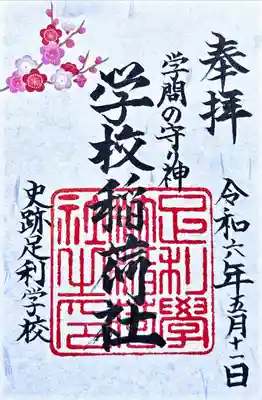 奉拝
令和六年五月十一日
学問の守り神
学校稲荷社
史跡足利学校
足利學
校稲荷
社之印